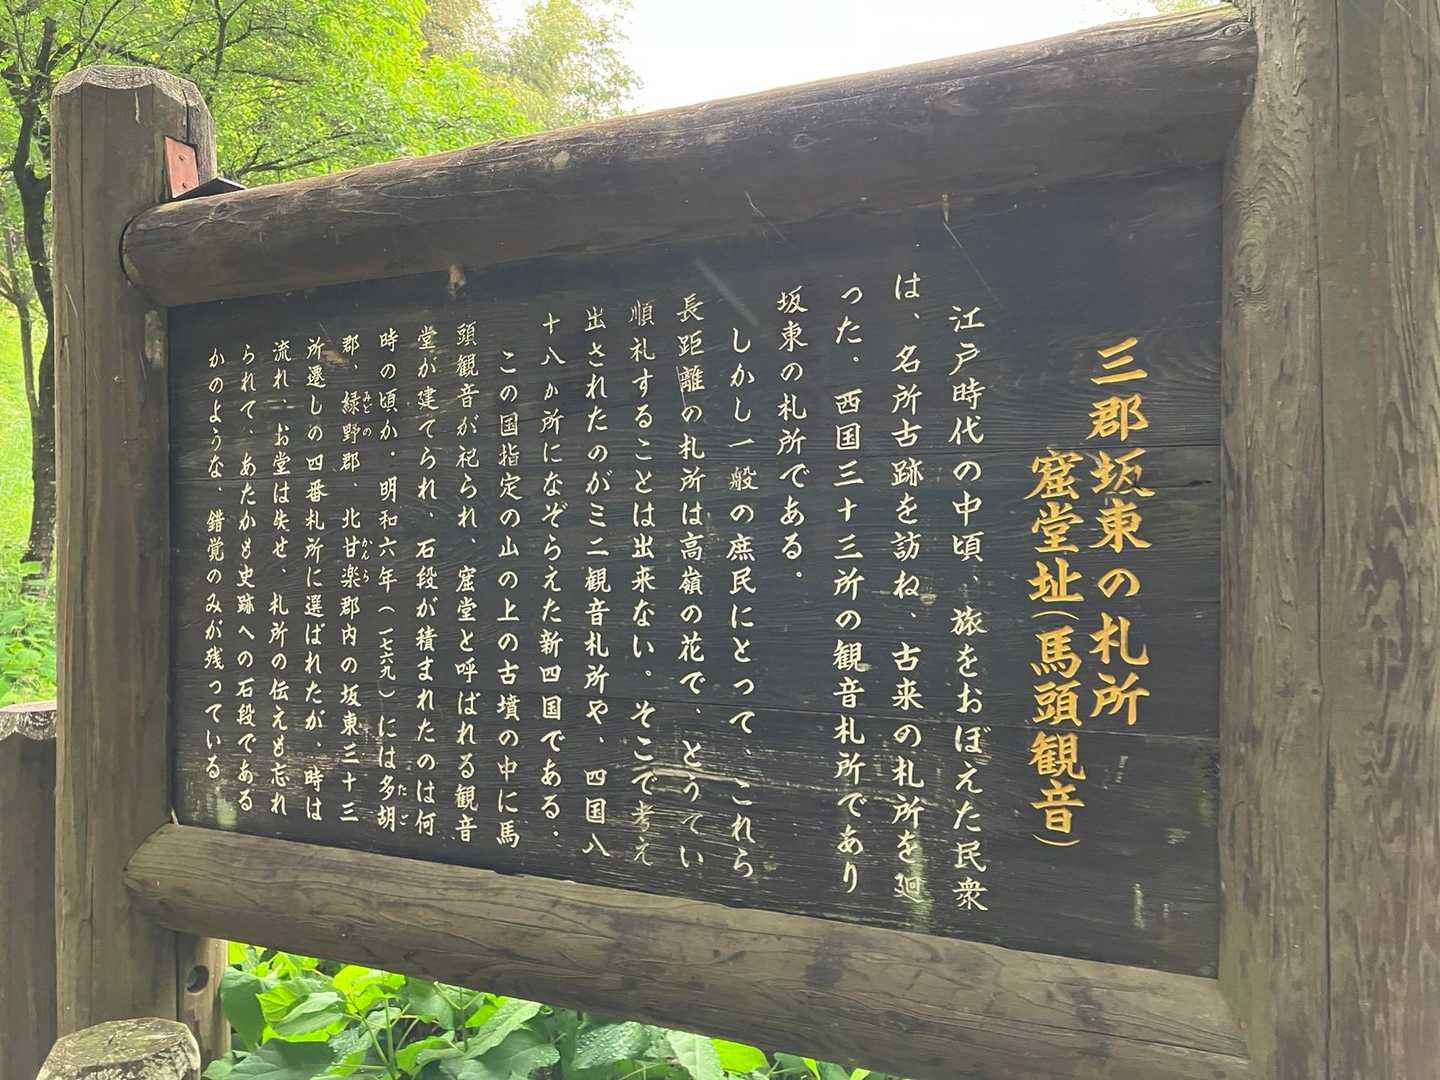 三郡坂東の札所
窟堂址(馬頭観音)
江戸時代の中頃、旅をおぼえた民衆
は、名所古跡を訪ね、古来の札所を廻
った。西国三十三所の観音札所であり
坂東の札所である。
しかし一般の庶民にとって、これら
長距離の札所は高嶺の花で、とうてい
順礼することは出来ない。そこで考え
出されたのがミニ観音札所や、四国八
十八か所になぞらえた新四国である.
この国指定の山の上の古墳の中に馬
頭観音が祀られ、窟堂と呼ばれる観音
堂が建てられ、石段が積まれたのは何
時の頃か.明和六年(一七六九)には多胡
たご
郡、緑野郡、北甘楽郡内の坂東三十三
みどの
かんら
所遷しの四番札所に選ばれたが、時は
流れ、お堂は失せ、札所の伝えも忘れ
られて、あたかも史跡への石段である
かのような、錯覚のみが残っている